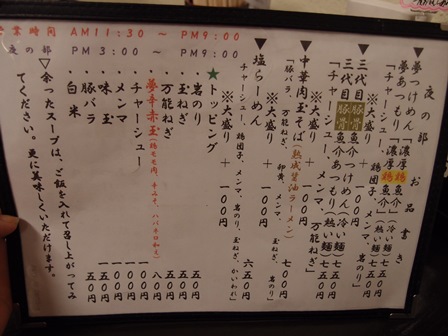 営業時間 AM11:30 ~ PM9:00
夜の部 PM 3:00 ~ PM9:00
夜の部 お品書き
▼夢つけめん「濃厚鶏魚介」(冷い麺)七五〇円
夢あつもり「濃厚鶏魚介」(熱い麺)七五〇円
「チャーシュー、鶏団子、メンマ、岩のり、玉ねぎ」
※大盛り + 一〇〇円
▼三代目豚骨魚介つけめん(冷い麺)七五〇円
三代目豚骨魚介あつもり(熱い麺)七五〇円
「チャーシュー、メンマ、万能ねぎ」
※大盛り + 一〇〇円
▼中華肉玉そば(熟成醤油ラーメン) 七〇〇円
「豚バラ、万能ねぎ、卵黄、メンマ、岩のり」
※大盛り + 一〇〇円
▼塩らーめん 六五〇円
チャーシュー、鶏団子、メンマ、岩のり、玉ねぎ、かいわれ」
※大盛り + 一〇〇円
★トッピング
・岩のり 五〇円
・玉ねぎ 五〇円
・万能ねぎ 五〇円
・夢辛赤玉 八〇円
・チャーシュー 一〇〇円
・メンマ 一〇〇円
・味玉 一〇〇円
・豚バラ 一五〇円
・白米 五〇円
▽余ったスープは、ご飯を入れて召し上がってみてください。更に美味しくいただけます。